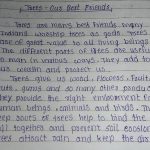 Trees - Our Best Friends,
Trees are mans best friends. many
worship trees as gods. Trees
are of great value to all living beings
The different parts of trees are useful
to man in various ways. They add to
and protect us.
Trees give us wood, flowers, Fruits,
gums and so many other products
They provide the right environment for
beings, animals and birds. The
deep roots of trees help to bind the
soil together and prevent soil erosion
Trees attract rain and keep the